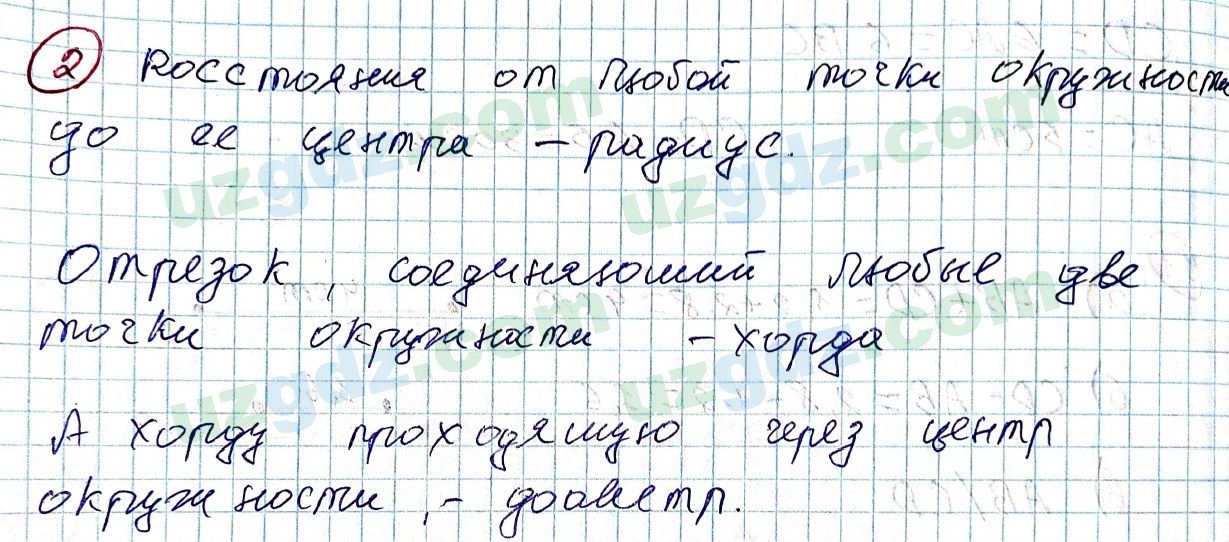 2 Росстояния от любой точки окружности
до ее центра – радиус.
Отрезок, соединяюший любые две
точки окружности – хорда
А хорду проходяшую через центр
окружности, – доаметр.
uzgdz.com uzgdz.com
uzgdz.com uzgdz.com